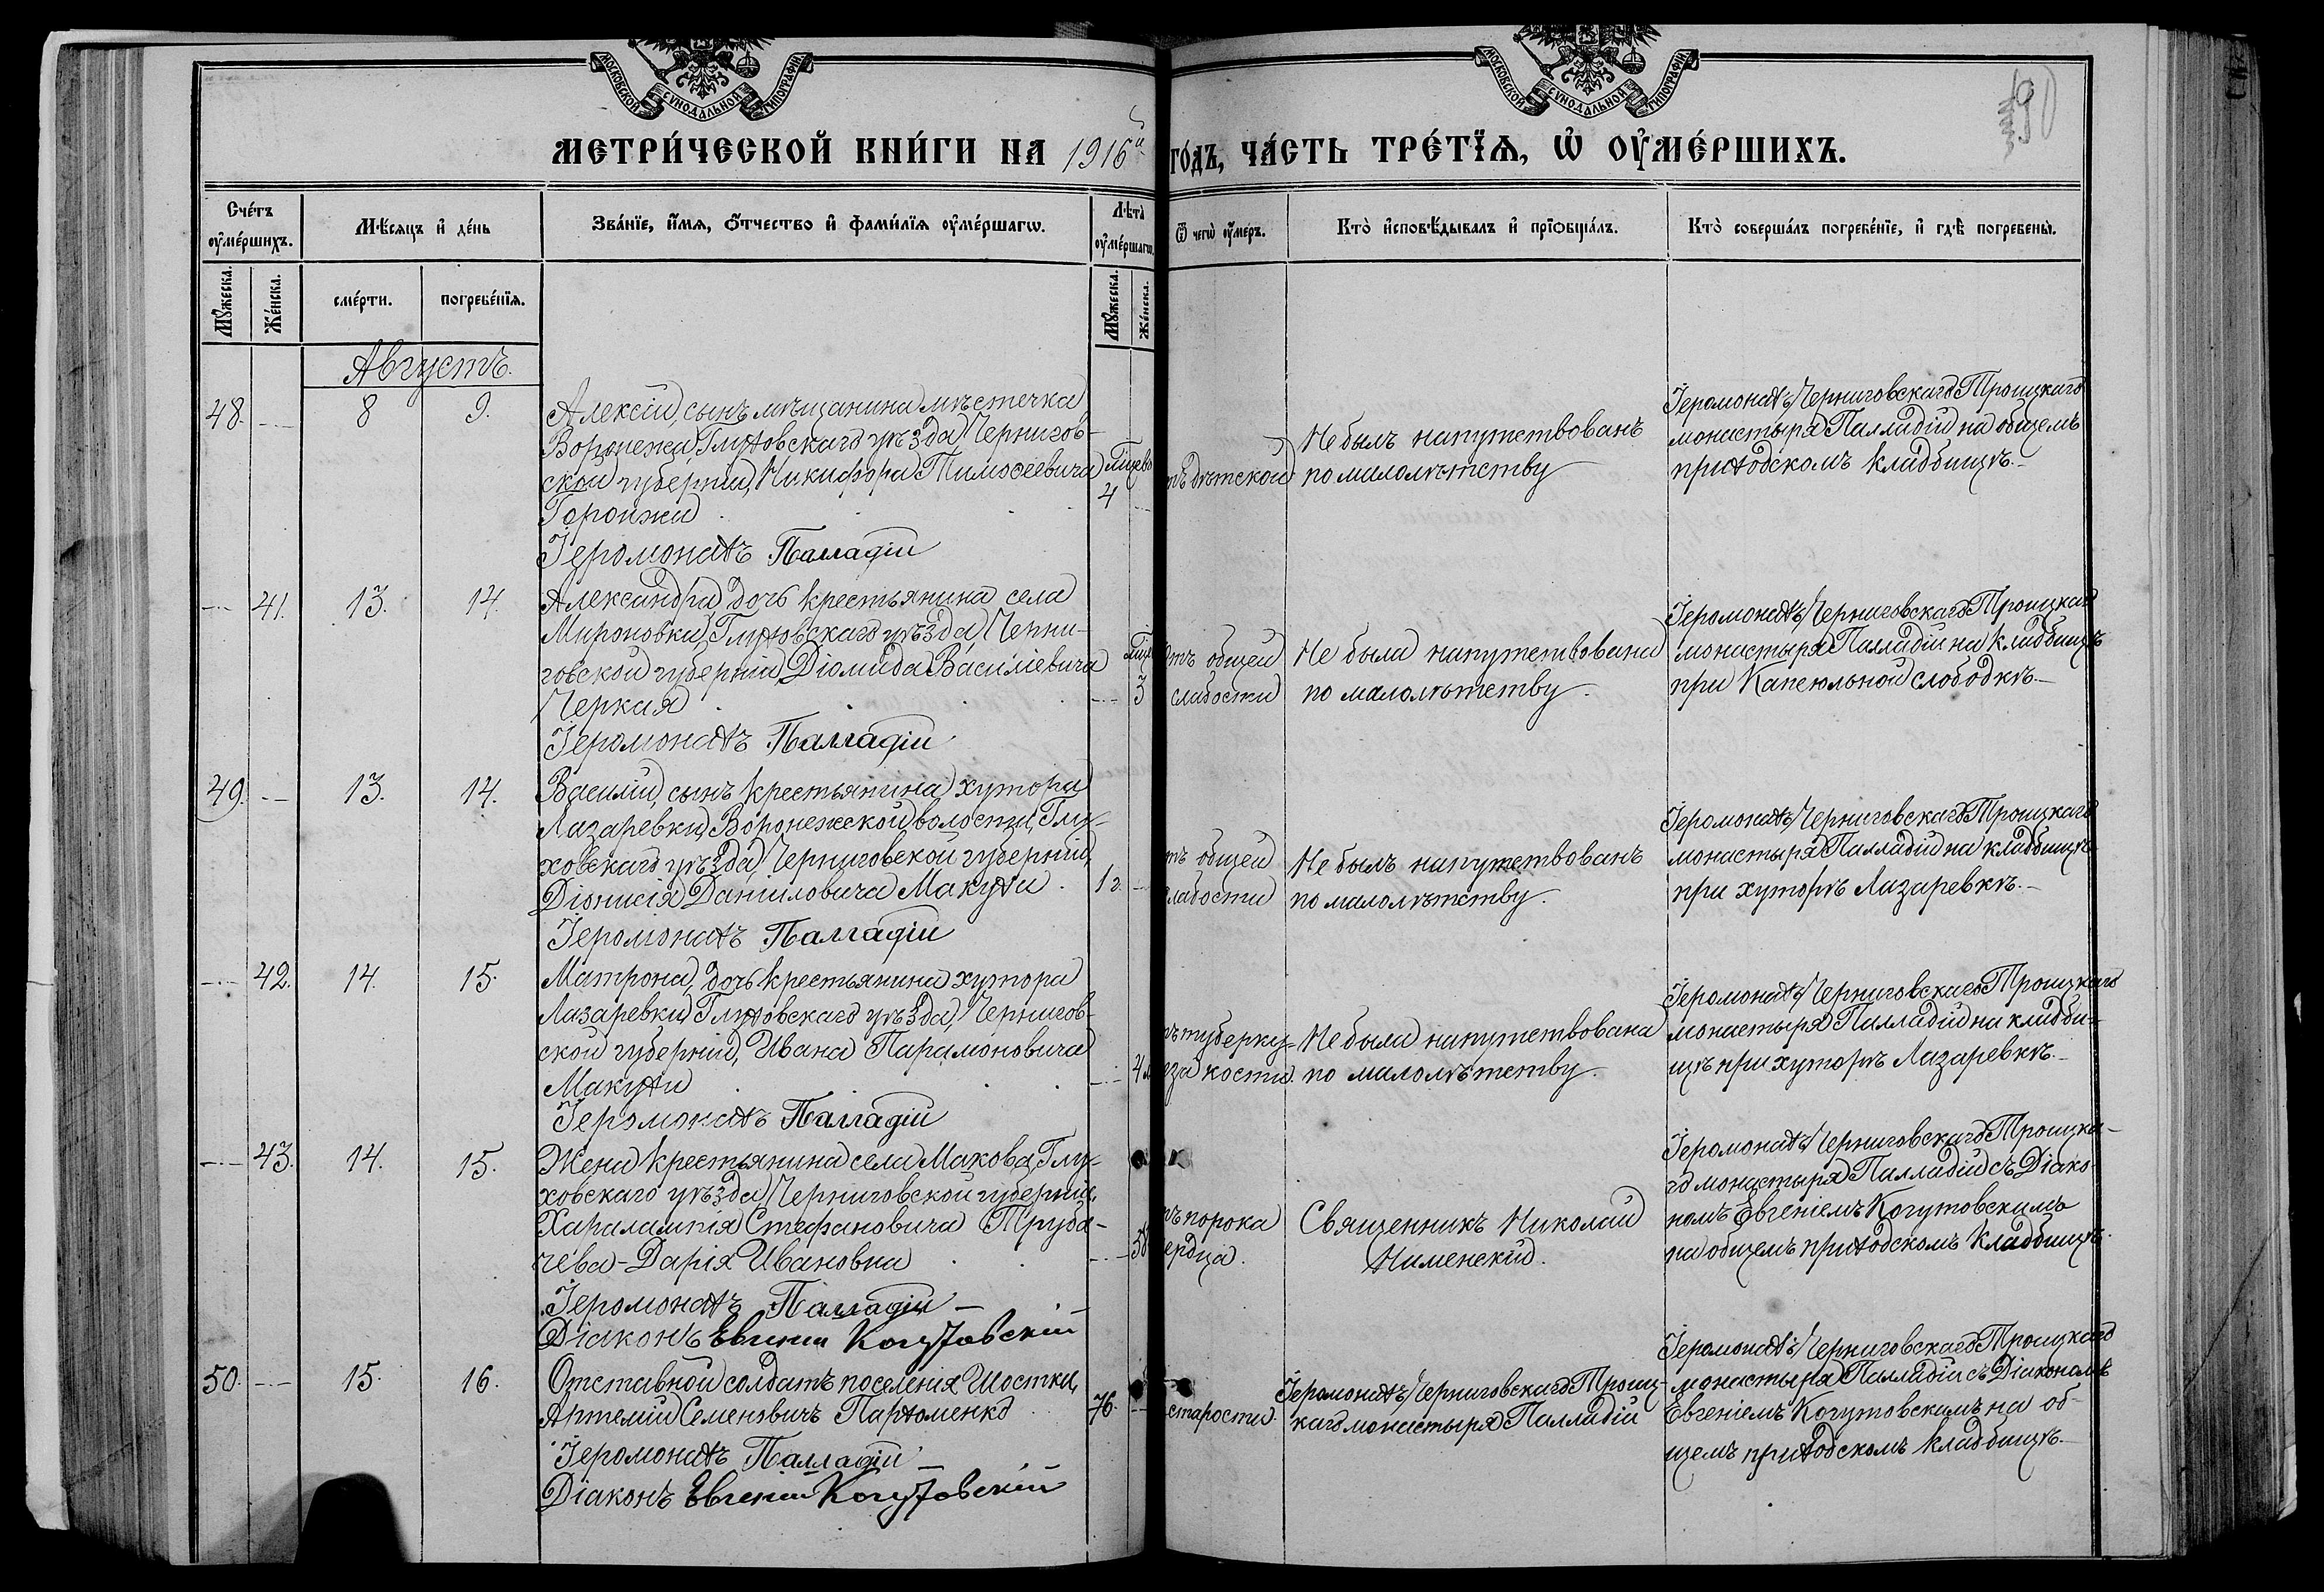 МОСКОВСКОЙ СѴНОДАЛЬНОЙ ТИПОГРАФІИ
МОСКОВСКОЙ СѴНОДАЛЬНОЙ ТИПОГРАФІИ
МЕТРИ́ЧЕСКОЙ КНИ́ГИ НА 1916й
ГО́ДЪ, ЧА́СТЬ ТРЕ́ТІѦ, Ѡ҆ ОУ҆МЕ́РШИХЪ.
90
Сче́тъ оу҆ме́ршихъ.
Мѣ́сяцъ и҆ де́нь
Зва́нїе, и҆́мя, ѻ҆́тчество и҆ фами́лїя оу҆ме́ршагѡ.
Лѣ́та оу҆ме́ршагѡ.
Ѿ чегѡ̀ оу҆́меръ.
Кто̀ и҆сповѣ́дывалъ и҆ прїѻбща́лъ.
Кто̀ соверша́лъ погребе́нїе, и҆ гдѣ̀ погребены̀.
Мꙋ́жеска.
Же́нска.
сме́рти.
погребе́нїя.
Мꙋ́жеска.
Же́нска.
Августъ.
48. -- 8 9.
Алексій, сынъ мѣщанина мѣстечка
Воронежа Глуховскаго уѣзда Чернигов-
ской губерніи, Никифора Тимоѳеевича
4
Іеромонахъ Палладій
дѣтской
Не былъ напутствованъ
по малолѣтству
Іеромонахъ Черниговскаго Троицкаго
монастыря Палладій на общемъ
приходскомъ кладбищѣ.-
-- 41. 13. 14.
Александра, дочь крестьянина села
Мироновки, Глуховскаго уѣзда, Черни-
говской губерніи, Діомида Василіевича
Черкая
-- 3
Іеромонахъ Палладій
отъ общей
слабости
Не была напутствована
по малолѣтству.
Іеромонахъ Черниговскаго Троицкаго
монастыря Палладій на кладбищѣ
при Капсюльной слободкѣ.-
49. -- 13. 14.
Василій, сынъ крестьянина хутора
Лазаревки, Воронежской волости, Глу-
ховскаго уѣзда, Черниговской губерніи,
Діонисія Даніиловича Макухи
1 г. -
Іеромонахъ Палладій
тъ общей
лабости
Не былъ напутствованъ
по малолѣтству.
Іеромонахъ Черниговскаго Троицкаго
монастыря Палладій на кладбищѣ
при хуторѣ Лазаревкѣ.-
-- 42. 14. 15.
Матрона, дочь крестьянина хутора
Лазаревки, Глуховскаго уѣзда, Чернигов-
ской губерніи, Ивана Парамоновича
Макухи
-- 4 м
Іеромонахъ Палладій
ъ туберку-
еза кости.
Не была напутствована
по малолѣтству.
Іеромонахъ Черниговскаго Троицкаго
монастыря Палладій на кладби-
щѣ при хуторѣ Лазаревкѣ.-
-- 43. 14. 15.
Жена крестьянина села Макова, Глу-
ховскаго уѣзда, Черниговской губерніи,
Харалампія Стефановича Труба-
чева - Дарія Ивановна
-- 58
Іеромонахъ Палладій -
Діаконъ Евгеній Когутовскій
ъ порока
ердца.
Священникъ Николай
Іеромонахъ Черниговскаго Троицка-
го монастыря Палладій съ Діако-
номъ Евгеніемъ Когутовскимъ
на общемъ приходскомъ кладбищѣ.
50. -- 15. 16.
Отставной солдатъ поселенія Шостки,
Артемій Семеновичъ Пархоменко
76. --
Іеромонахъ Палладій -
Діаконъ Евгеній Когутовскій
старости.
Іеромонахъ Черниговскаго Троиц-
каго монастыря Палладій
Іеромонахъ Черниговскаго Троицкаго
монастыря Палладій съ Діакономъ
Евгеніемъ Когутовскимъ на об-
щемъ приходскомъ кладбищѣ.-